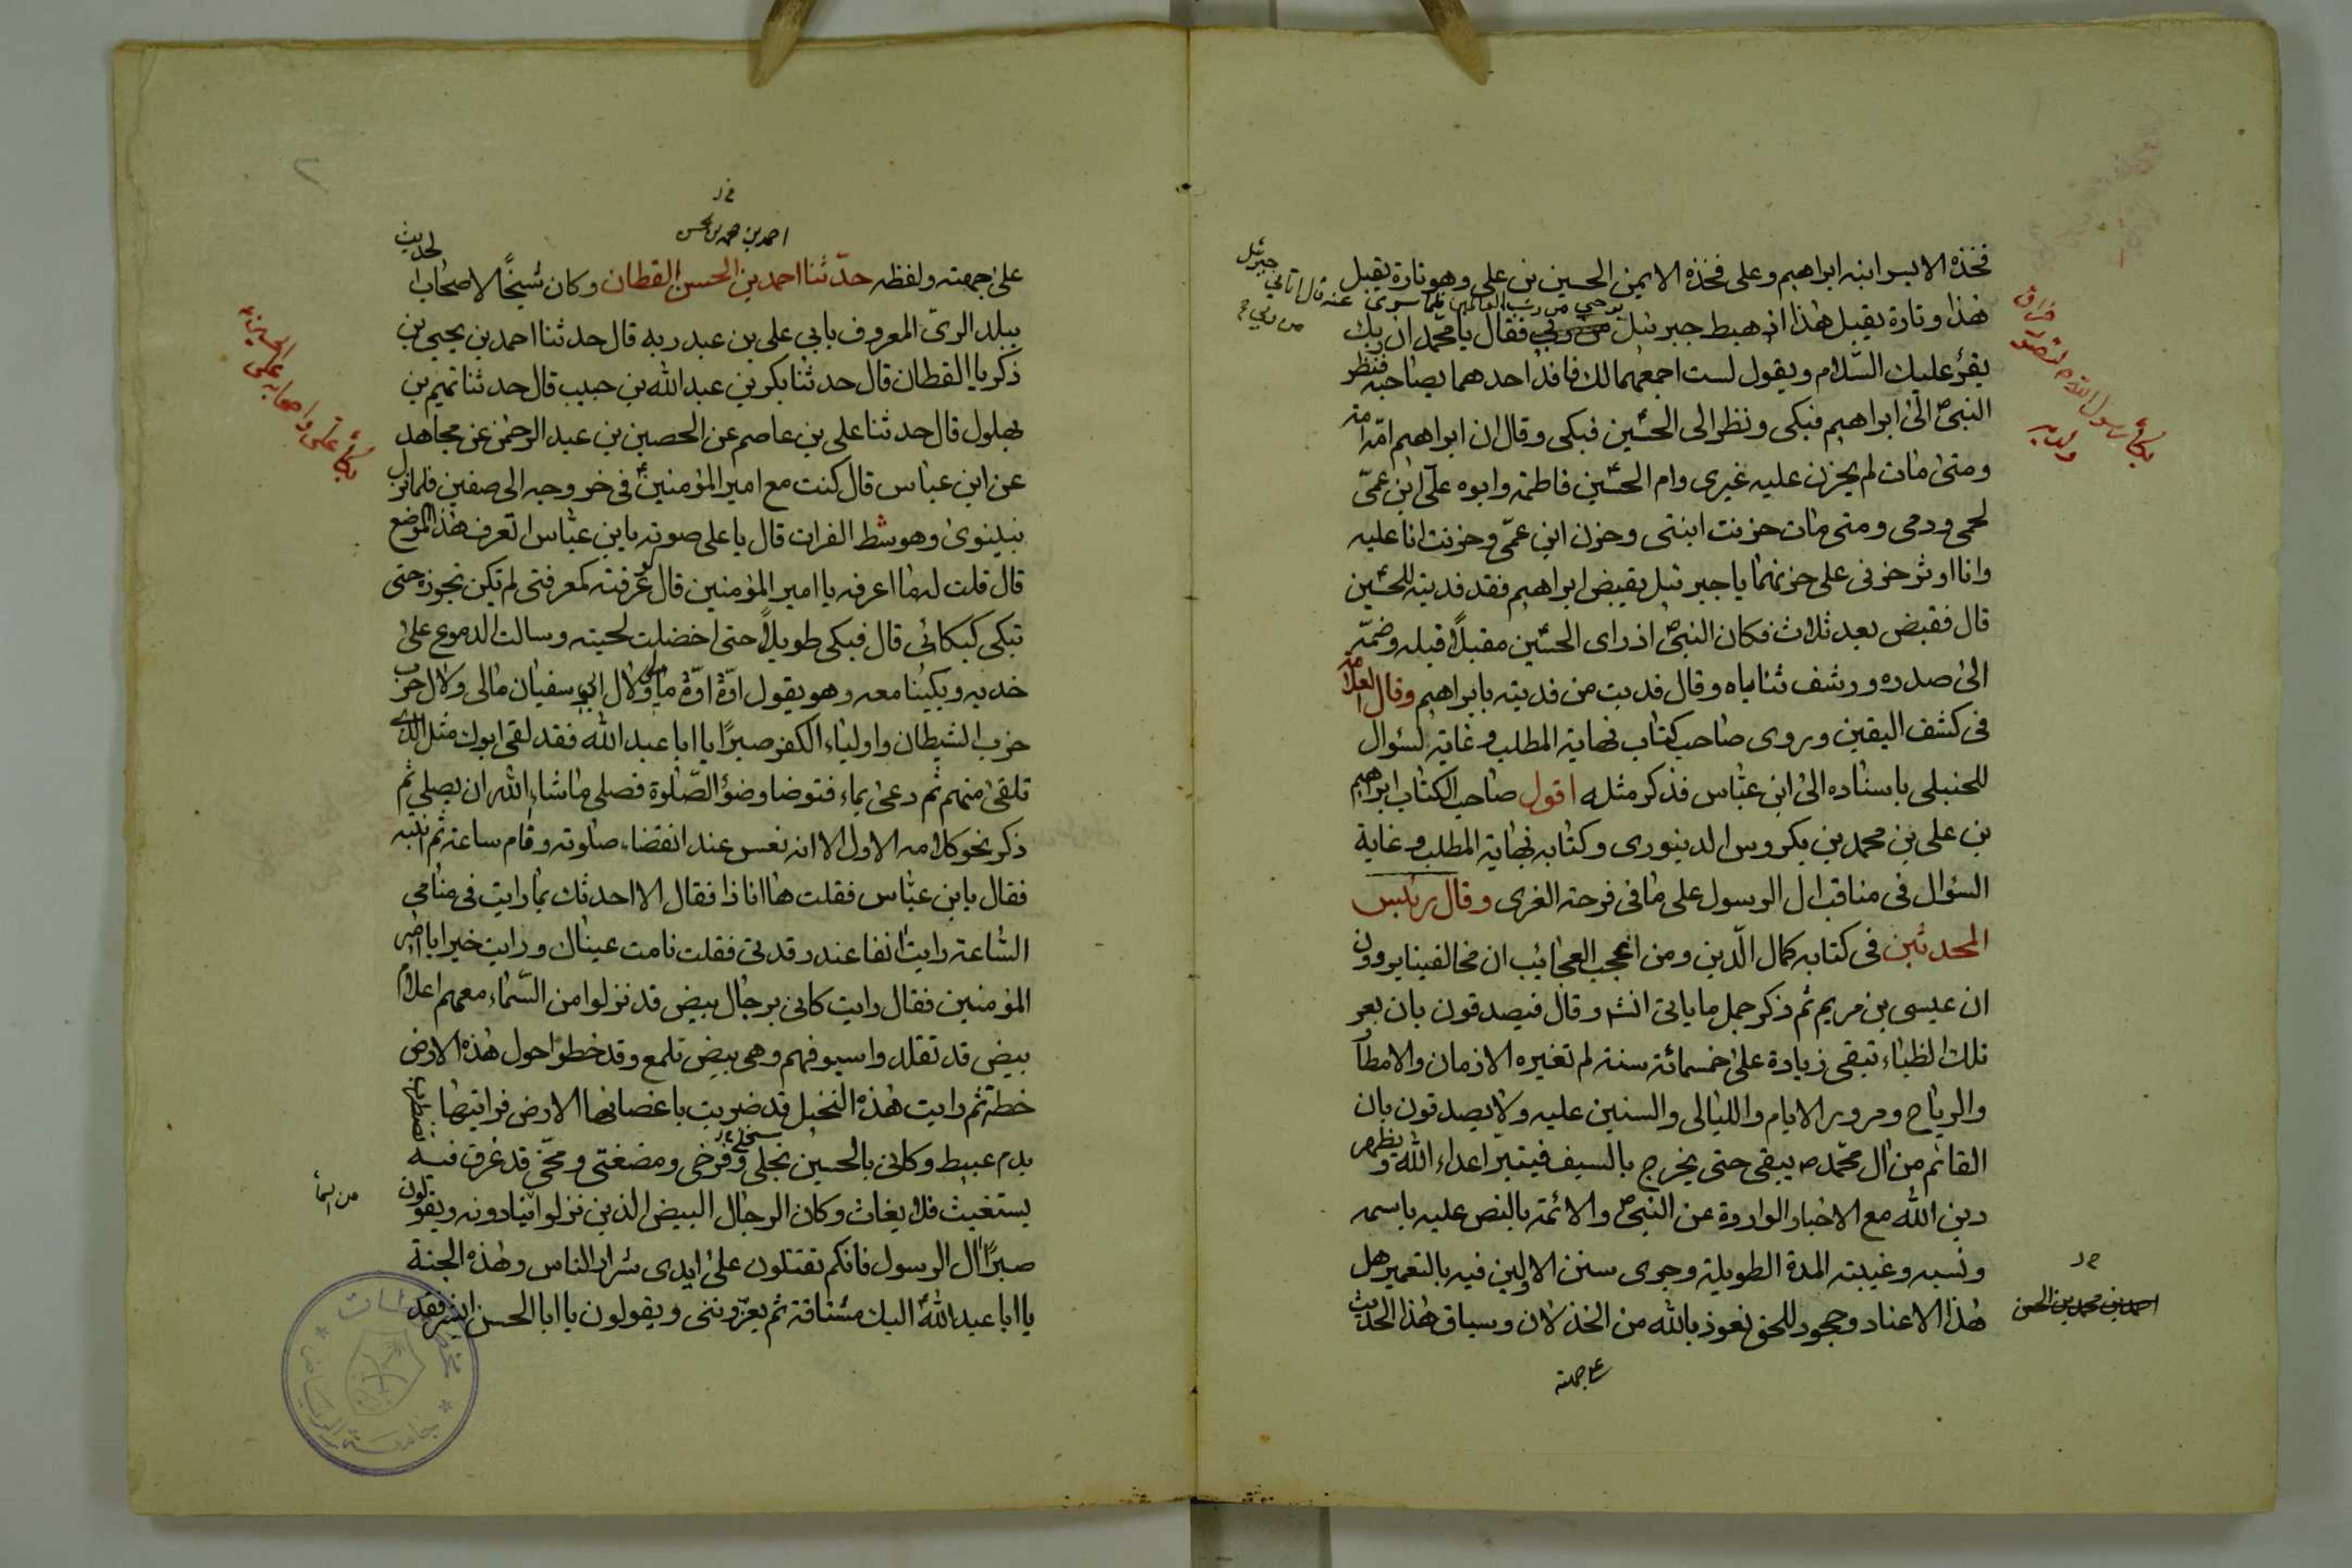 فخذه الايسر ابنه ابراهيم وعلى فخذه الايمن الحسين بن على وهو تارة يقبل
هذا وتارة يقبل هذا اذ هبط جبرئيل بوحي من رب العالمين فلما سرى عنه قال اتاني جبرئيل من ربي فقال يا محمد ان ربك
يقرؤ عليك السّلام ويقول لست اجمعهما لك فافد احدهما بصاحبه فنظر
النبيّ الى ابراهيم فبكى ونظر الى الحسين فبكى وقال ان ابراهيم امّه امة
ومتى مات لم يحزن عليه غيرى وام الحسين فاطمة وابوه على ابن عمّى
لحمى ودمى ومتى مات حزنت ابنتى وحزن ابن عمّى وحزنت انا عليه
وانا اوثر حزنى على حزنهما يا جبرئيل يقبض ابراهيم فقد فديته للحسين
قال فقبض بعد ثلاث فكان النبيّ اذ راى الحسين مقبلاً قبله وضمّه
الى صدره ورشف ثناياه وقال فديت من فديته بابراهيم وقال العلامة
فى كشف اليقين وروى صاحب كتاب نهاية المطلب وغاية السئوال
للحنبلى باسناده الى ابن عباس فذكر مثله اقول صاحب الكتاب ابراهيم
بن على بن محمد بن بكروس الدينورى وكتابه نهاية المطلب وغاية
السؤال فى مناقب ال الرسول على ما فى فرحة الغرى وقال رئيس
المحدثين فى كتابه كمال الدّين ومن اعجب العجائب ان مخالفينا يروون
ان عيسى بن مريم ثم ذكر جمل ما ياتى انشـ وقال فيصدقون بان بعر
تلك الظباء تبقى زيادة على خمسمائة سنة لم تغيره الازمان والامطار
والرياح ومرور الايام والليالى والسنين عليه ولا يصدقون بان
القائم من ال محمّد ص يبقى حتى يخرج بالسيف فيتبرّ اعداء الله ويظهر
دين الله مع الاخبار الواردة عن النبيّ والائمة بالنص عليه باسمه
ونسبه وغيبته المدة الطويلة وجرى سنن الاولين فيه بالتعمير هل
هذا الا عناد وجحود للحق نعوذ بالله من الخذلان وسياق هذا الحديث
على جهته
بكاء رسول الله ص لتصور فراق ولديه
احمد بن محمد بن الحسن
احمد بن محمد بن الحسن
على جهته ولفظه حدّثنا احمد بن الحسن القطان وكان شيخًا لاصحاب الحديث
ببلد الرىّ المعروف بابي على بن عبد ربه قال حدثنا احمد بن يحيى بن
زكريا القطان قال حدثنا بكر بن عبد الله بن حبيب قال حدثنا تميم بن
بهلول قال حدثنا على بن عاصم عن الحصين بن عبد الرحمن عن مجاهد
عن ابن عباس قال كنت مع امير المؤمنين فى خروجه الى صفين فلما نزل
بنينوى وهو شط الفرات قال باعلى صوته يا بن عباس اتعرف هذا الموضع
قال قلت له ما اعرفه يا امير المؤمنين قال لو عرفته كمعرفتى لم تكن تجوزه حتى
تبكى كبكائى قال فبكى طويلاً حتى اخضلت لحيته وسالت الدموع على
خديه وبكينا معه وهو يقول اوّه اوّه مالى ولال ابى سفيان مالى ولال حرب
حزب الشيطان واولياء الكفر صبرًا يا ابا عبد الله فقد لقى ابوك مثل الذى
تلقى منهم ثم دعى بماء فتوضا وضؤ الصّلوة فصلى ما شاء الله ان يصلى ثم
ذكر نحو كلامه الاول الا انه نعس عند انقضاء صلوته وقام ساعة ثم انتبه
فقال يا بن عباس فقلت ها انا ذا فقال الا احدثك بما رايت فى منامى
الساعة رايت انفا عند رقدتى فقلت نامت عيناك ورايت خيرا يا امير
المؤمنين فقال رايت كانى برجال بيض قد نزلوا من السّماء معهم اعلام
بيض قد تقلدوا سيوفهم وهى بيض تلمع وقد خطوا حول هذه الارض
خطة ثم رايت هذه النخيل قد ضربت باغصانها الارض فرايتها
بدم عبيط وكانى بالحسين نجلى وفرخى ومضغتى ومخى قد غرق فيه
يستغيث فلا يغاث وكان الرجال البيض الذين نزلوا ينادونه ويقولون
صبرًا ال الرسول فانكم تقتلون على ايدى شرار الناس وهذه الجنة
يا ابا عبد الله اليك مشتاقة ثم يعزّوننى ويقولون يا ابا الحسن ابشر فقد
بكاء على واصحابه على الحسين
من السماء
جامعة الرياض
مخطوطات
٢